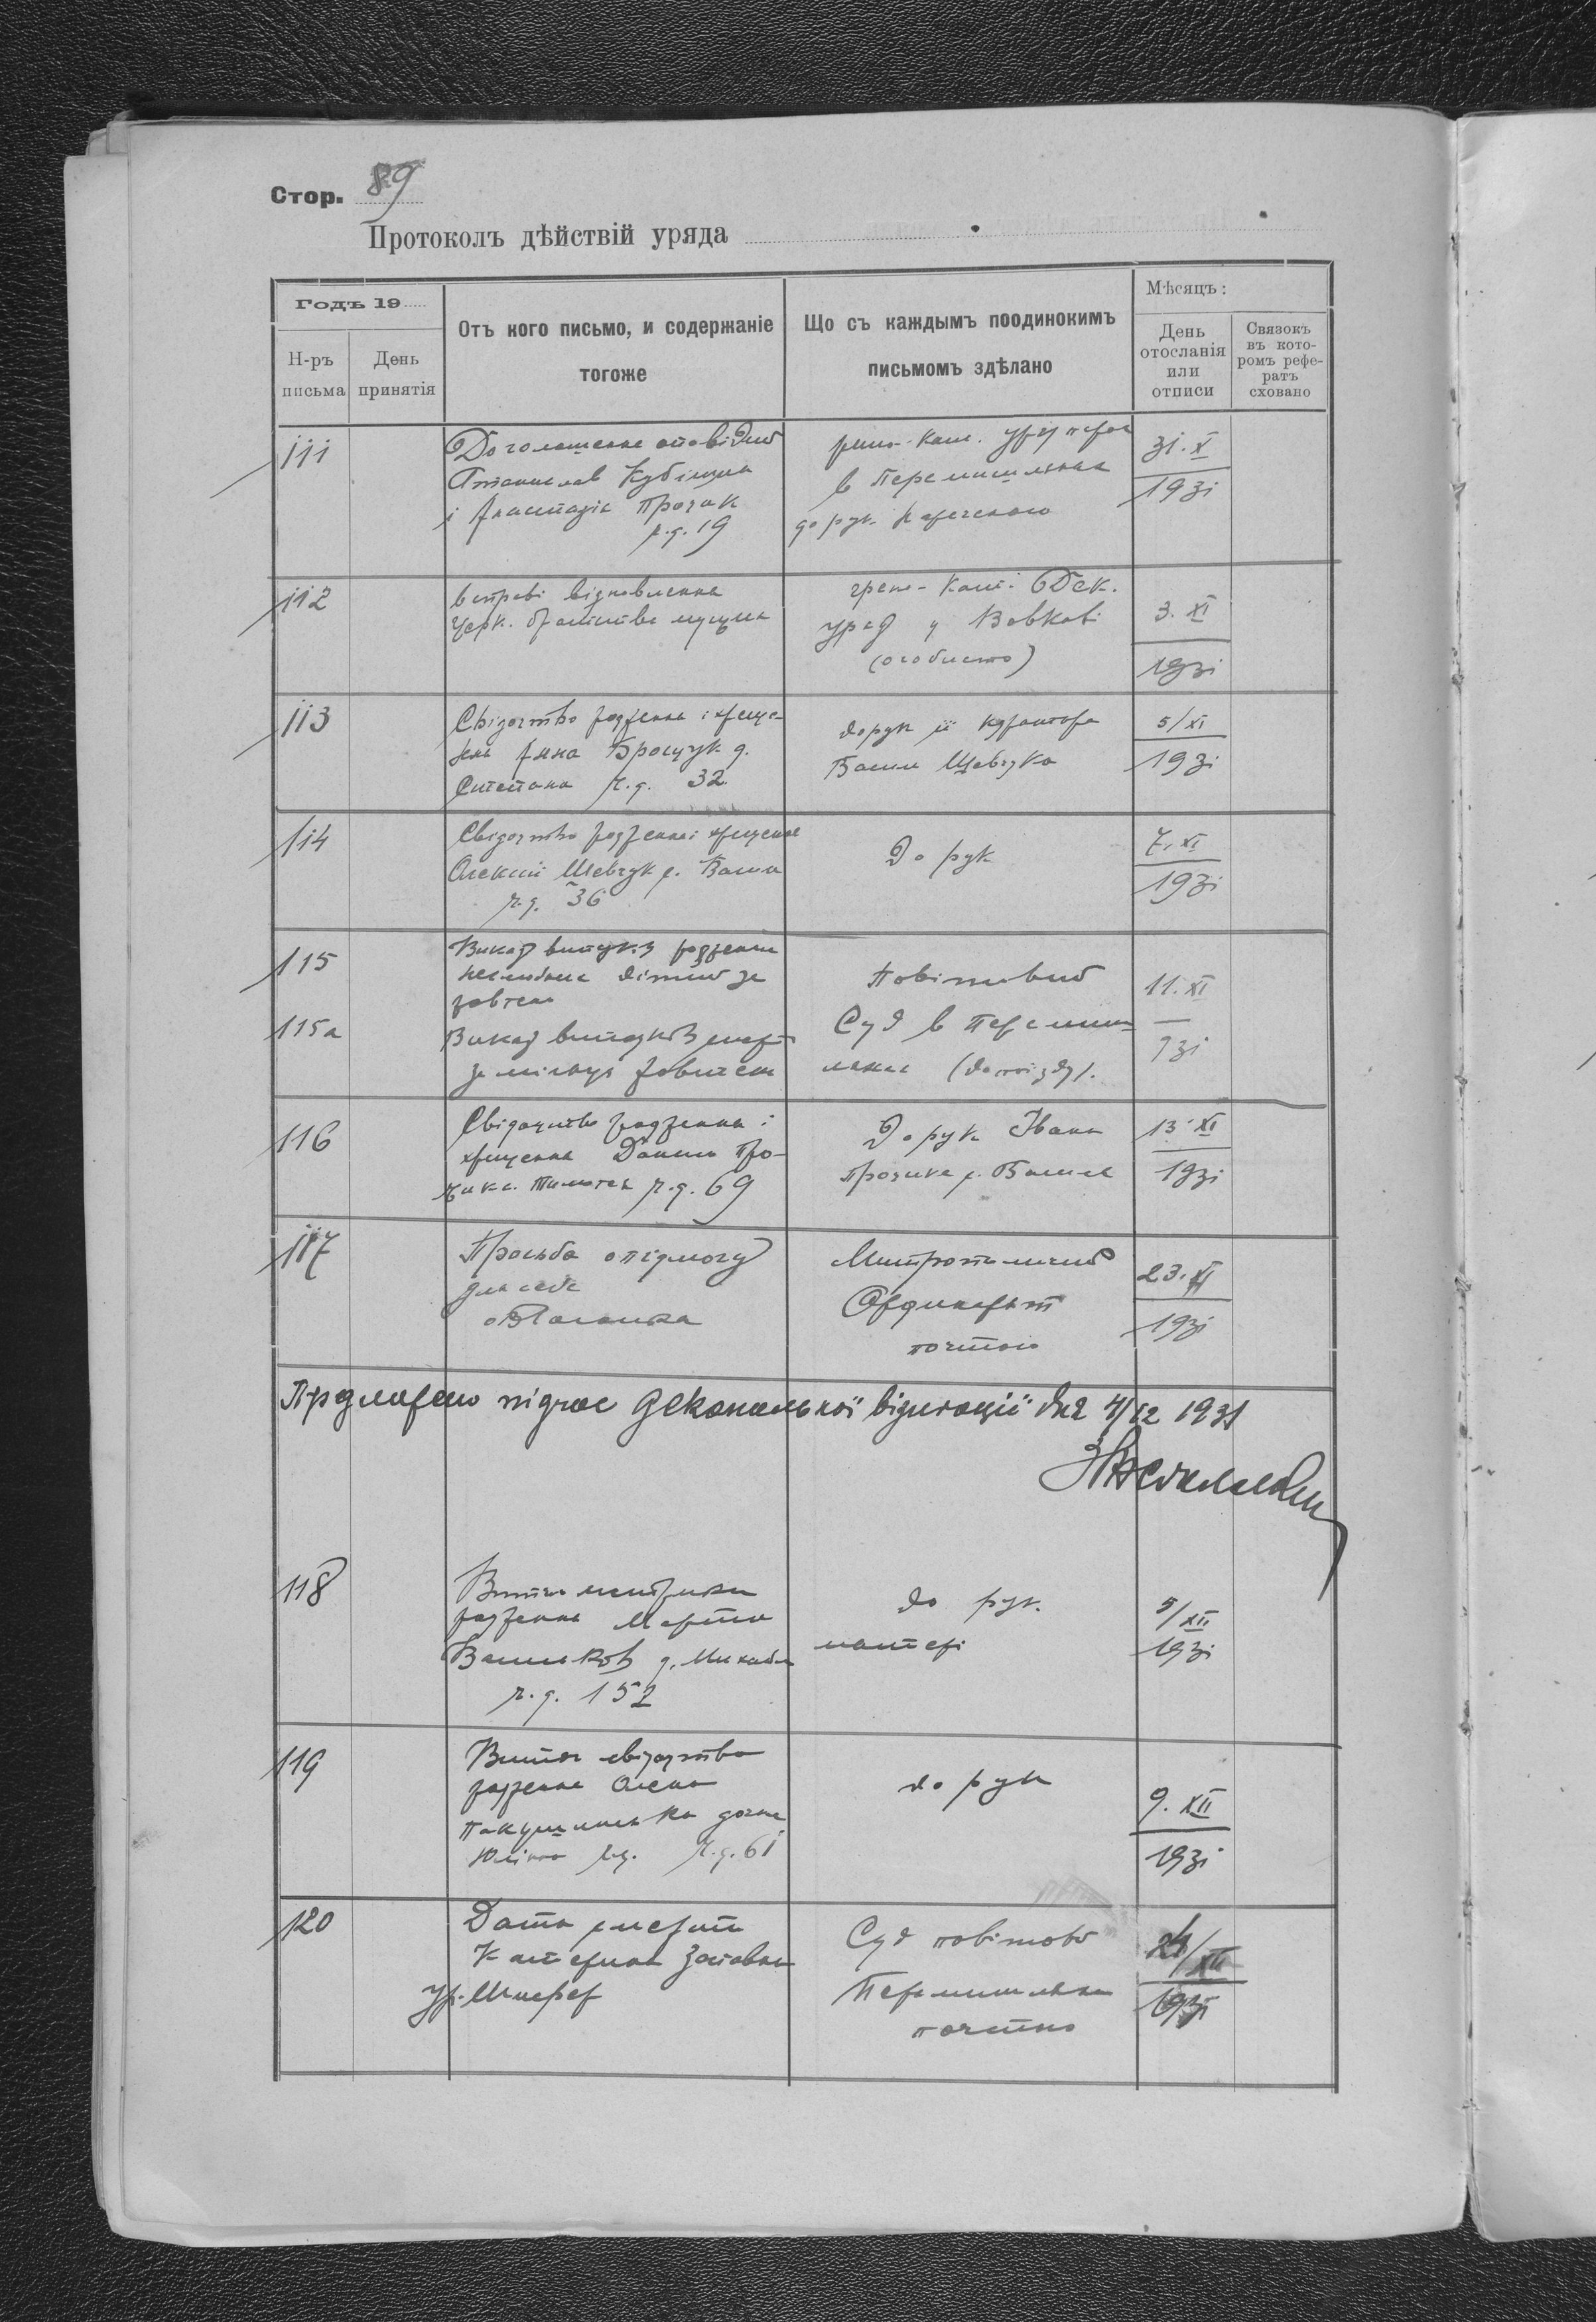 Стор. 89
Протоколъ дѣйствій уряда
Годъ 19
Н-ръ письма
День принятія
Отъ кого письмо, и содержаніе
тогоже
Що съ каждымъ поодинокимъ
письмомъ здѣлано
Мѣсяцъ:
День
отосланія
или
отписи
Связокъ
въ кото-
ромъ рефе-
ратъ
сховано
111
Доголошенне оповідий
Станислав
і Анастазія Прочак
ч.д. 19
в Перемишлянах
до рук
31.X
1931
112
в справі відновлення
Церк. братства
греко-кат. Дек.
уряд у Вовкові
(особисто)
3. XI
1931
113
Свідоцтво родження і хреще-
ня Анна Брощук д.
Степана ч.д. 32
до рук її куратора
Василя Шевчука
5/XI
1931
114
Свідоцтво родження і хрещення
Олексій Шевчук с. Василя
ч.д. 36
До рук
7. XI
1931
115
Виказ випадків родження
неслюбних дітий за
жовтень
115а
Виказ випадків смерти
за місяць жовтень
Повітовий
Суд в Перемиш-
лянах
11. XI
31
116
Свідоцтво родження і
хрещення Данило Про-
чика Тимотея ч.д. 69
До рук Івана
Прочика с. Василя
13. XI
1931
117
Просьба о підмогу
для себе
Митрополичий
Ординарят
почтою
23. XI
1931
Предложено підчас деканальної візитації дня 4/12 1931
118
Витяг метрики
родження Марта
Васильків д. Михайла
ч.д. 152
до рук
матері
5/XII
1931
119
Витяг свідоцтва
родження Олена
дочка
ч.д. 61
до рук
9. XII
1931
120
Дата смерти
Катерина
ур.
Суд повітовий
Перемишляни
почтою
XII
1931